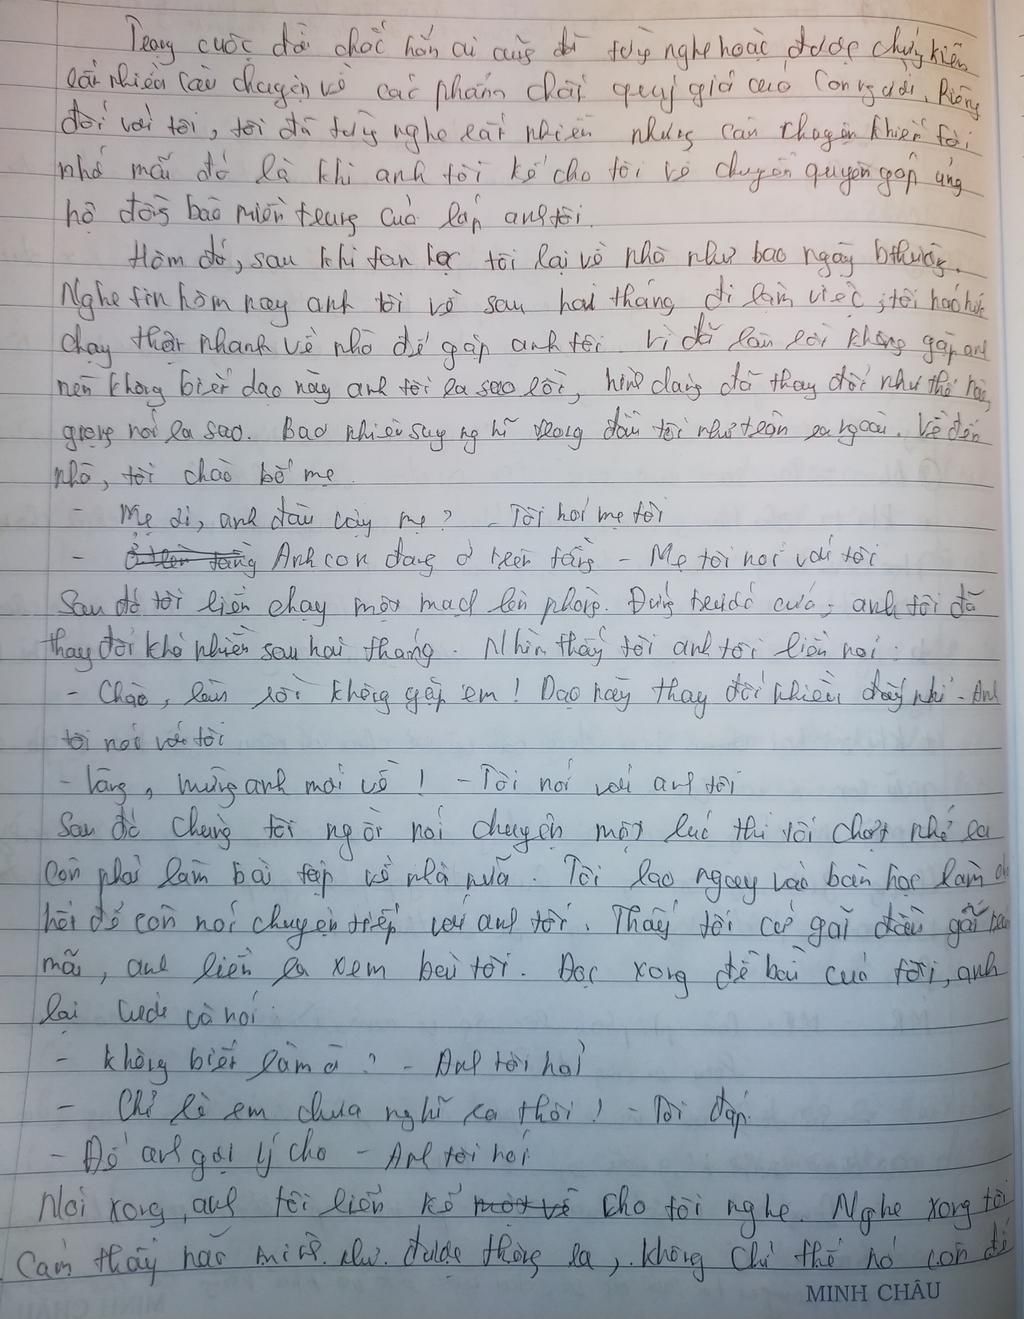 Trong cuộc đời chắc hẳn ai cũng đã từng nghe hoặc được chứng kiến
rất nhiều câu chuyện về các phẩm chất quý giá của con người. Riêng
đối với tôi, tôi đã từng nghe rất nhiều nhưng câu chuyện khiến tôi
nhớ mãi đó là khi anh tôi kể cho tôi về chuyện quyên góp ủng
hộ đồng bào miền trung của lớp anh tôi.
Hôm đó, sau khi tan học tôi lại về nhà như bao ngày bthường.
Nghe tin hôm nay anh tôi về sau hai tháng đi làm việc, tôi háo hức
chạy thật nhanh về nhà để gặp anh tôi. Vì đã lâu rồi không gặp anh
nên không biết dạo này anh tôi ra sao rồi, hình dáng đã thay đổi như thế nào,
giọng nói ra sao. Bao nhiêu suy nghĩ trong đầu tôi như tràn ra ngoài. Về đến
nhà, tôi chào bố mẹ.
- Mẹ ơi, anh đâu rồi mẹ? - Tôi hỏi mẹ tôi
- Ở trên tầng Anh con đang ở trên tầng - Mẹ tôi nói với tôi
Sau đó tôi liền chạy một mạch lên phòng. Đứng trước cửa, anh tôi đã
thay đổi khá nhiều sau hai tháng. Nhìn thấy tôi anh tôi liền nói:
- Chào, lâu rồi không gặp em! Dạo này thay đổi nhiều đấy nhỉ - Anh
tôi nói với tôi
- Vâng, mừng anh mới về! - Tôi nói với anh tôi
Sau đó chúng tôi ngồi nói chuyện một lúc thì tôi chợt nhớ ra
còn phải làm bài tập về nhà nữa. Tôi lao ngay vào bàn học làm
hồi để còn nói chuyện tiếp với anh tôi. Thấy tôi cứ gãi đầu gãi
mãi, anh liền ra xem bài tôi. Đọc xong đề bài của tôi, anh
lại cười và nói:
- Không biết làm à? - Anh tôi hỏi
- Chỉ là em chưa nghĩ ra thôi! - Tôi đáp.
- Để anh gợi ý cho - Anh tôi nói
Nói xong, anh tôi liền kể một về cho tôi nghe. Nghe xong tôi
cảm thấy não mình như được thông ra, không chỉ thế nó còn để
MINH CHÂU